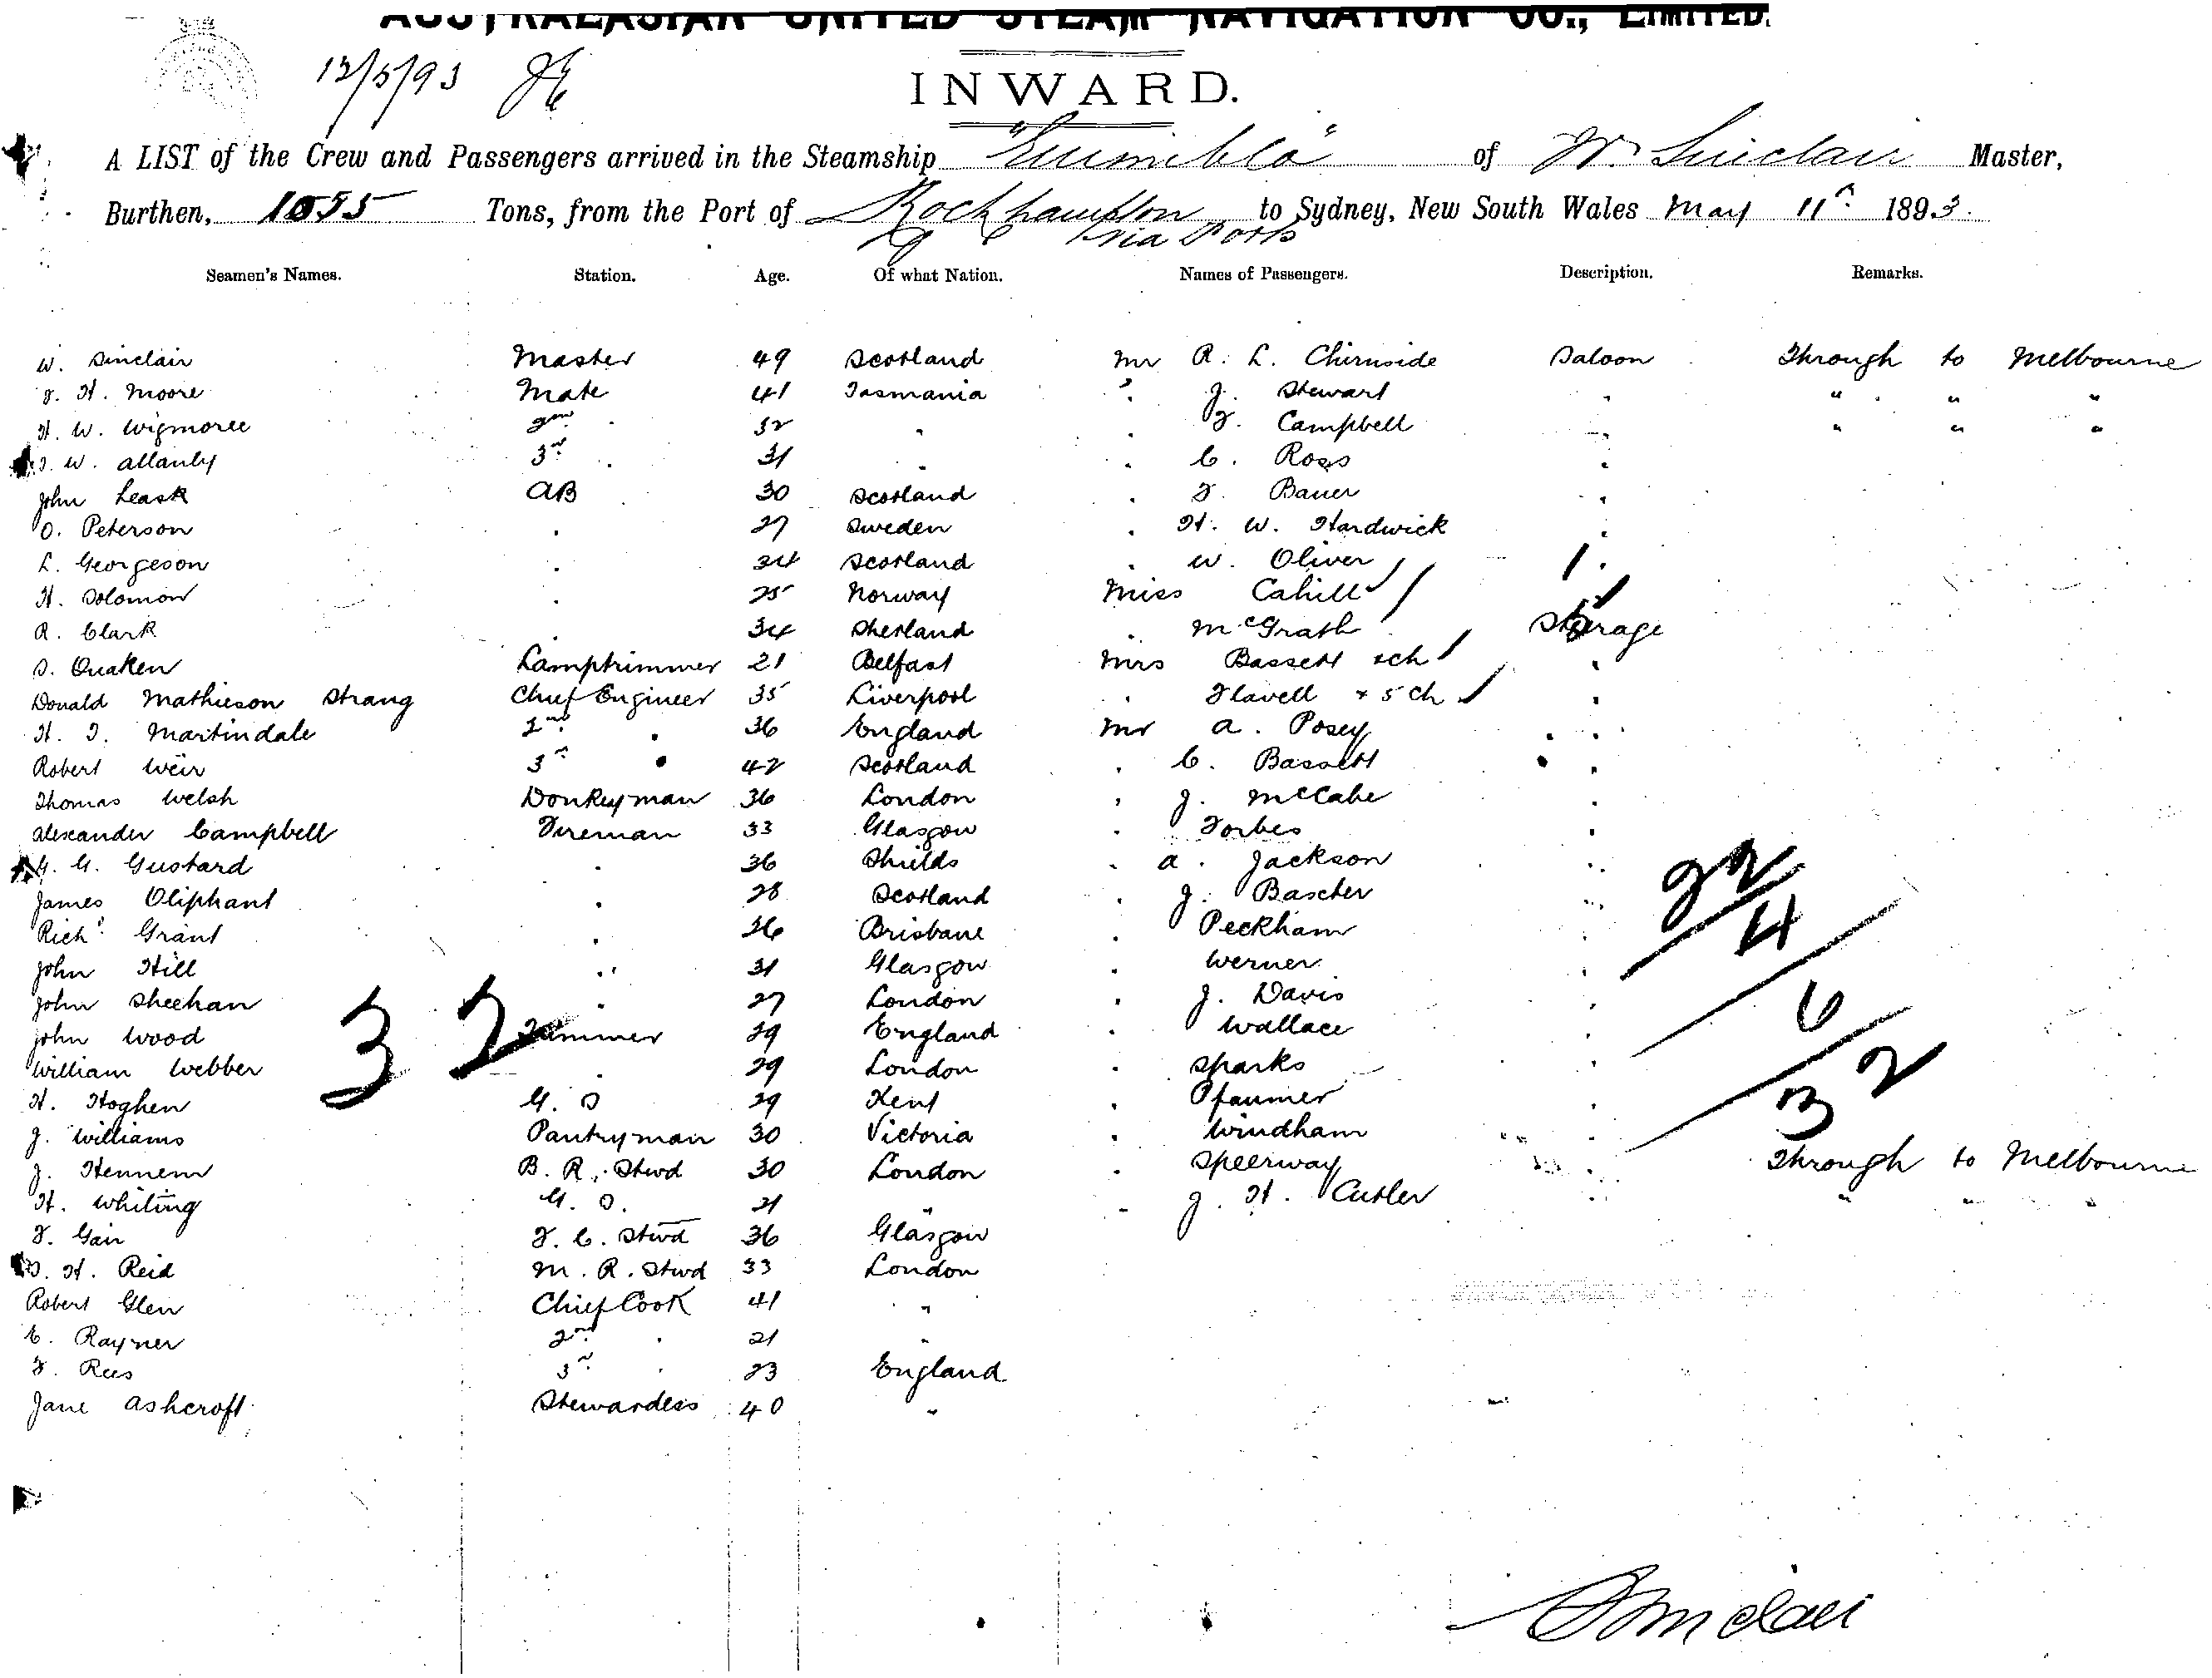 AUSTRALASIAN UNITED STEAM NAVIGATION CO., LIMITED.
12/5/93
INWARD.
A LIST of the Crew and Passengers arrived in the Steamship "Eurimbla" of W. Sinclair Master,
Burthen, 1055 Tons, from the Port of Rockhampton to Sydney, New South Wales May 11th 1893.
via Ports
Seamen's Names. Station. Age. Of what Nation. Names of Passengers. Description. Remarks.
W. Sinclair Master 49 Scotland Mr R. L. Chirnside Saloon Through to Melbourne
J. H. Moore Mate 41 Tasmania " J. Stewart " " " "
H. W. Wigmore 2nd 32 " " F. Campbell " " " "
W. Allanby 3rd 31 " " C. Ross "
John Leask AB 30 Scotland " F. Bauer "
O. Peterson " 27 Sweden " H. W. Hardwick "
L. Georgeson " 34 Scotland " W. Oliver "
H. Solomon " 25 Norway Miss Cahill
R. Clark " 34 Shetland " McGrath Steerage
S. Quaken Lamptrimmer 21 Belfast Mrs Bassett & ch "
Donald Mathieson Strang Chief Engineer 35 Liverpool " Flavell + 5 ch "
H. T. Martindale 2nd " 36 England Mr A. Posey "
Robert Weir 3rd " 42 Scotland " C. Bassett "
Thomas Welsh Donkeyman 36 London " J. McCabe "
Alexander Campbell Fireman 33 Glasgow " Forbes "
G. Gustard " 36 Shields " A. Jackson "
James Oliphant " 28 Scotland " J. Bascher "
Richd Grant " 26 Brisbane " Peckham "
John Hill " 31 Glasgow " Werner "
John Sheehan " 27 London " J. Davis "
John Wood Trimmer 29 England " Wallace "
William Webber " 29 London " Sparks "
H. Hoghen G. S 29 Kent " Pfaumer "
J. Williams Pantryman 30 Victoria " Windham "
J. Hennem B. R. Stwd 30 London " Speerway " Through to Melbourne
H. Whiting G. S. 21 " " J. H. Cutler " " " "
F. Gair F. C. Stwd 36 Glasgow
H. Reid M. R. Stwd 33 London
Robert Glen Chief Cook 41 "
E. Rayner 2nd " 21 "
F. Rees 3rd " 23 England
Jane Ashcroft Stewardess 40 "
32
22
4
6
32
Sinclair